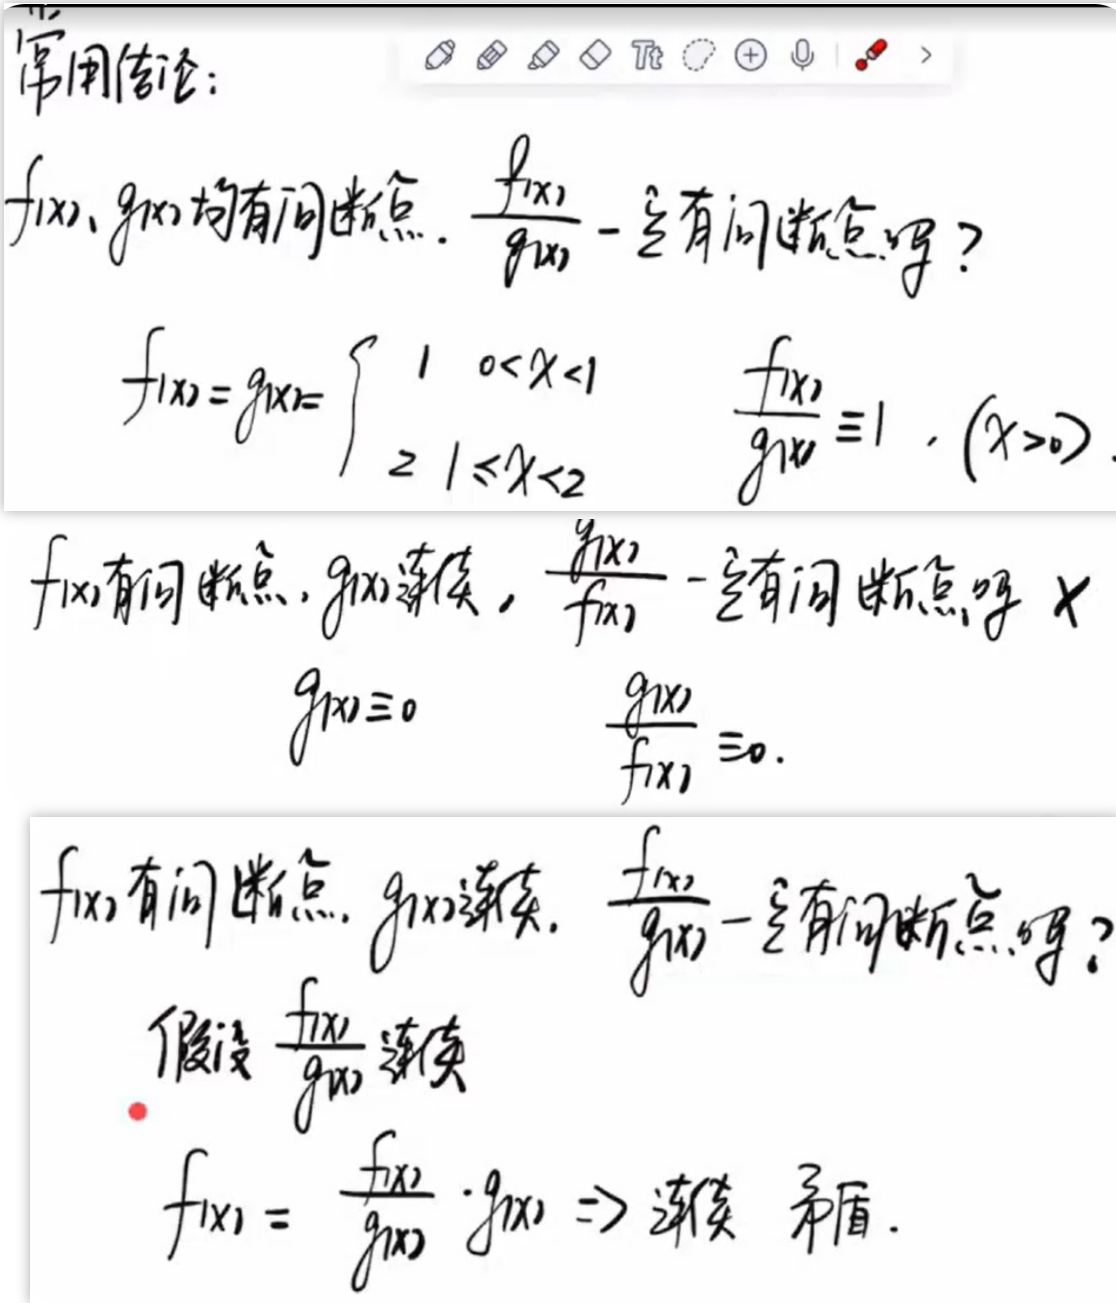 常用结论:
Tt
f(x)、g(x)均有间断点. f(x)/g(x) 一定有间断点吗?
f(x)=g(x)= { 1 0<x<1
2 1≤x<2
f(x)/g(x) ≡1 , (x>0).
f(x)有间断点, g(x)连续, g(x)/f(x) 一定有间断点吗 ×
g(x)≡0 g(x)/f(x) ≡0.
f(x)有间断点. g(x)连续. f(x)/g(x) 一定有间断点吗?
假设 f(x)/g(x) 连续
f(x) = f(x)/g(x) · g(x) => 连续 矛盾.